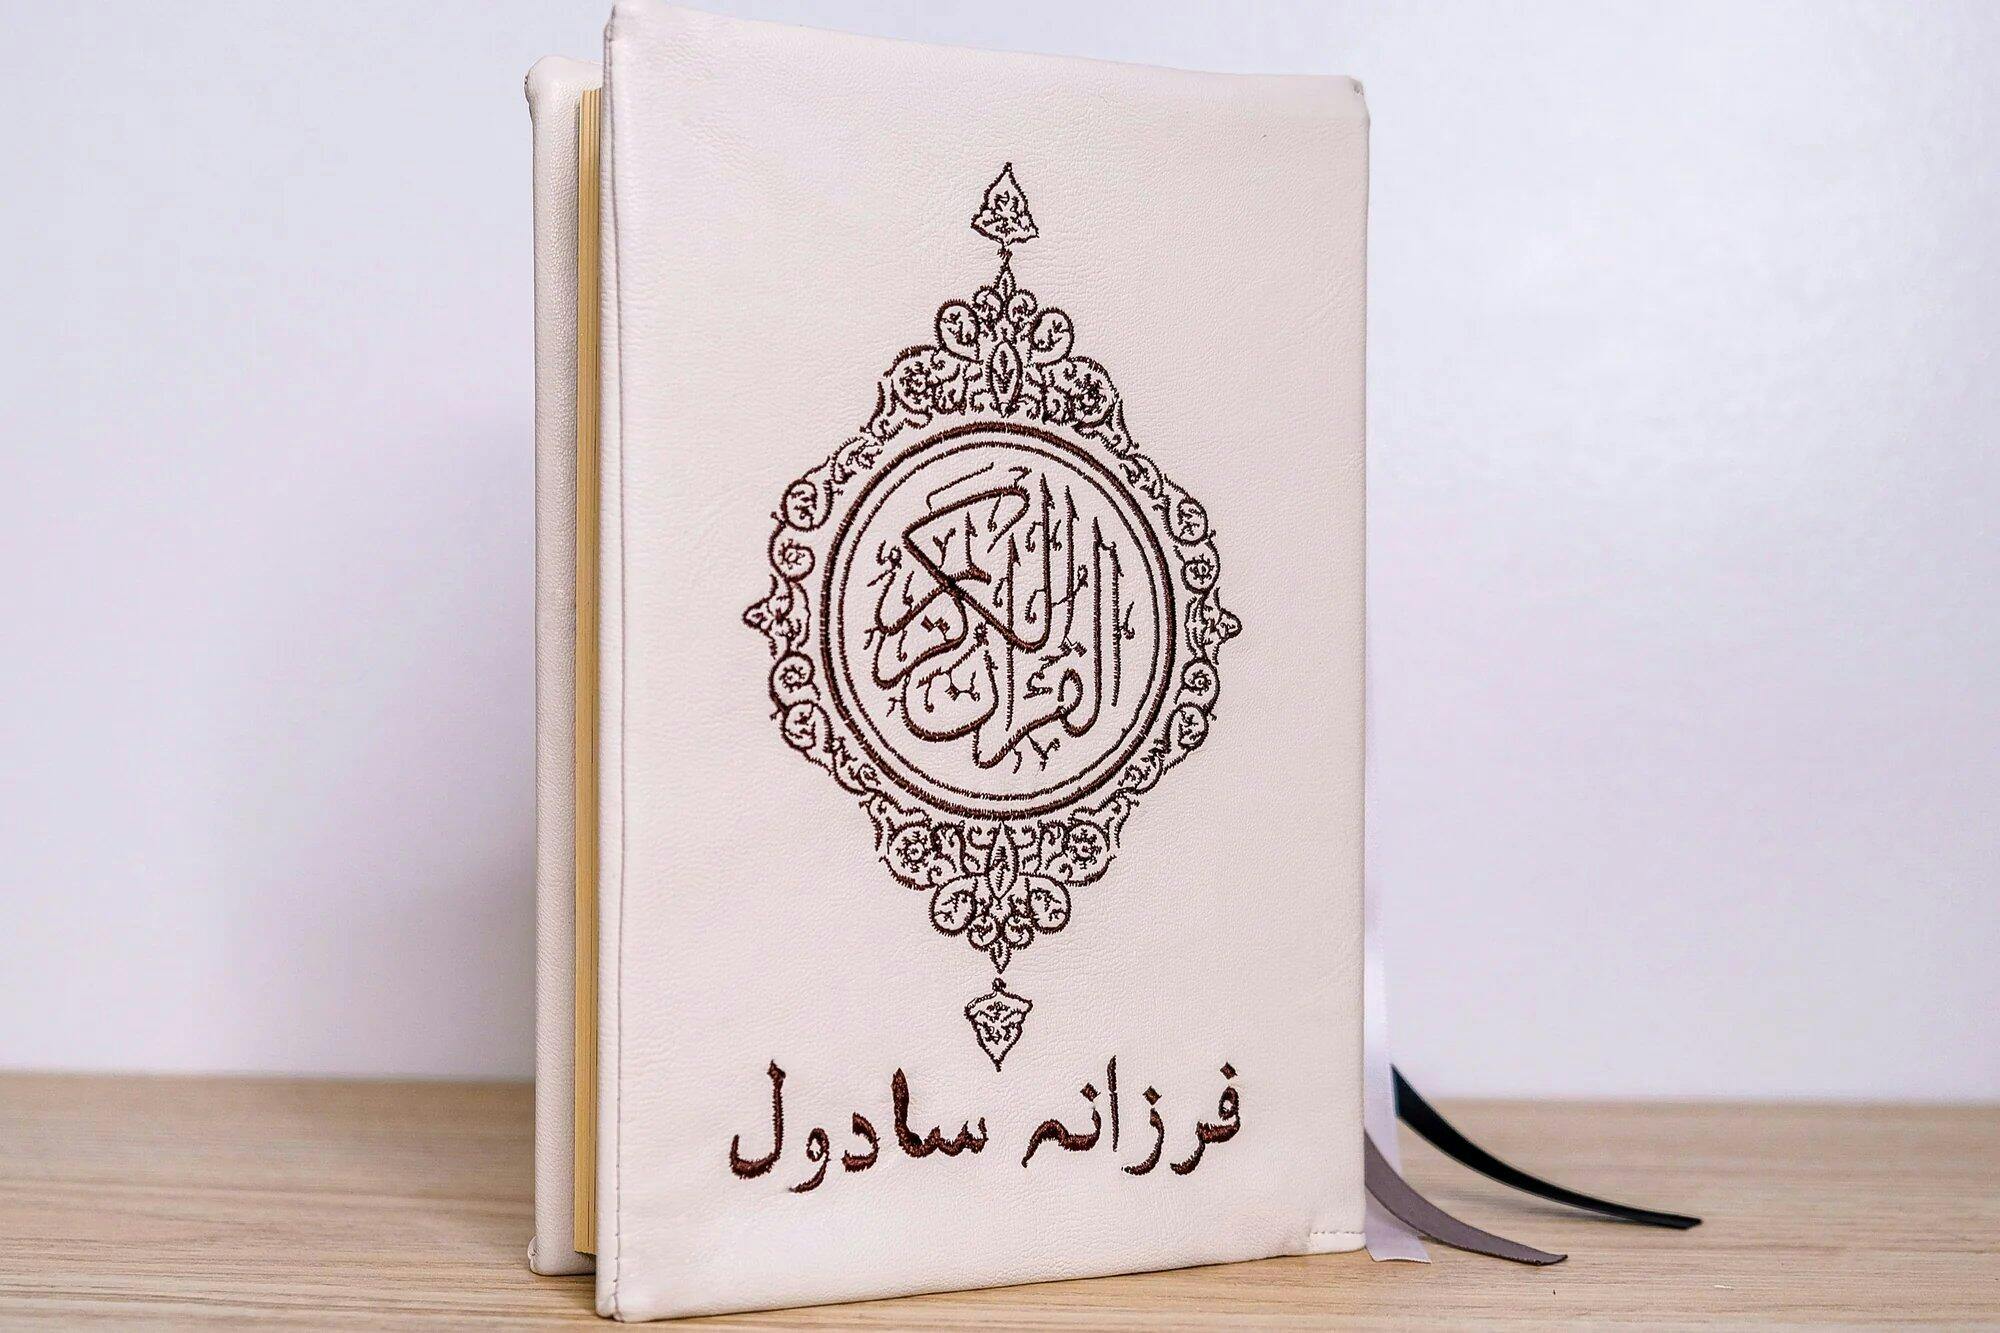 القرآن الكريم
فرزانه سادول